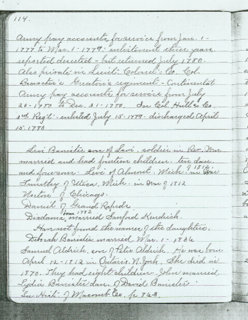 114.
Army pay accounts for service from Jan. 1-
1777 to Mar. 1-1779. enlistment three years
reported deserted - but returned July 1780.
Also private in Lieut. Colonel. Co. Col
regiment - Continental
Army pay accounts for service from July
20-1780 to Dec. 31-1780. In Col. Hull's Co.
3rd Reg't. enlisted July 15-1780. discharged April
15-1780
Levi Banister son of Levi. soldier in Rev. War
married and had fourteen children. ten
and four sons. Levi of Almont, Mich. in War
Timothy of Utica, Mich. in War of 1812
of Chicago.
Daniel of Grand Rapids
born 1782
married Sanford Kendrick
Have not found the names of the daughters.
Deborah Banister married Mar. 1-1836
Samuel Aldrich, son of Peter Aldrich. He was born
April 12-1812 in Ontario N. York. She died in
1870. They had eight children. John married
Lydia Banister dau. of David Banister.
See Hist. of Macomb Co. p. 743.